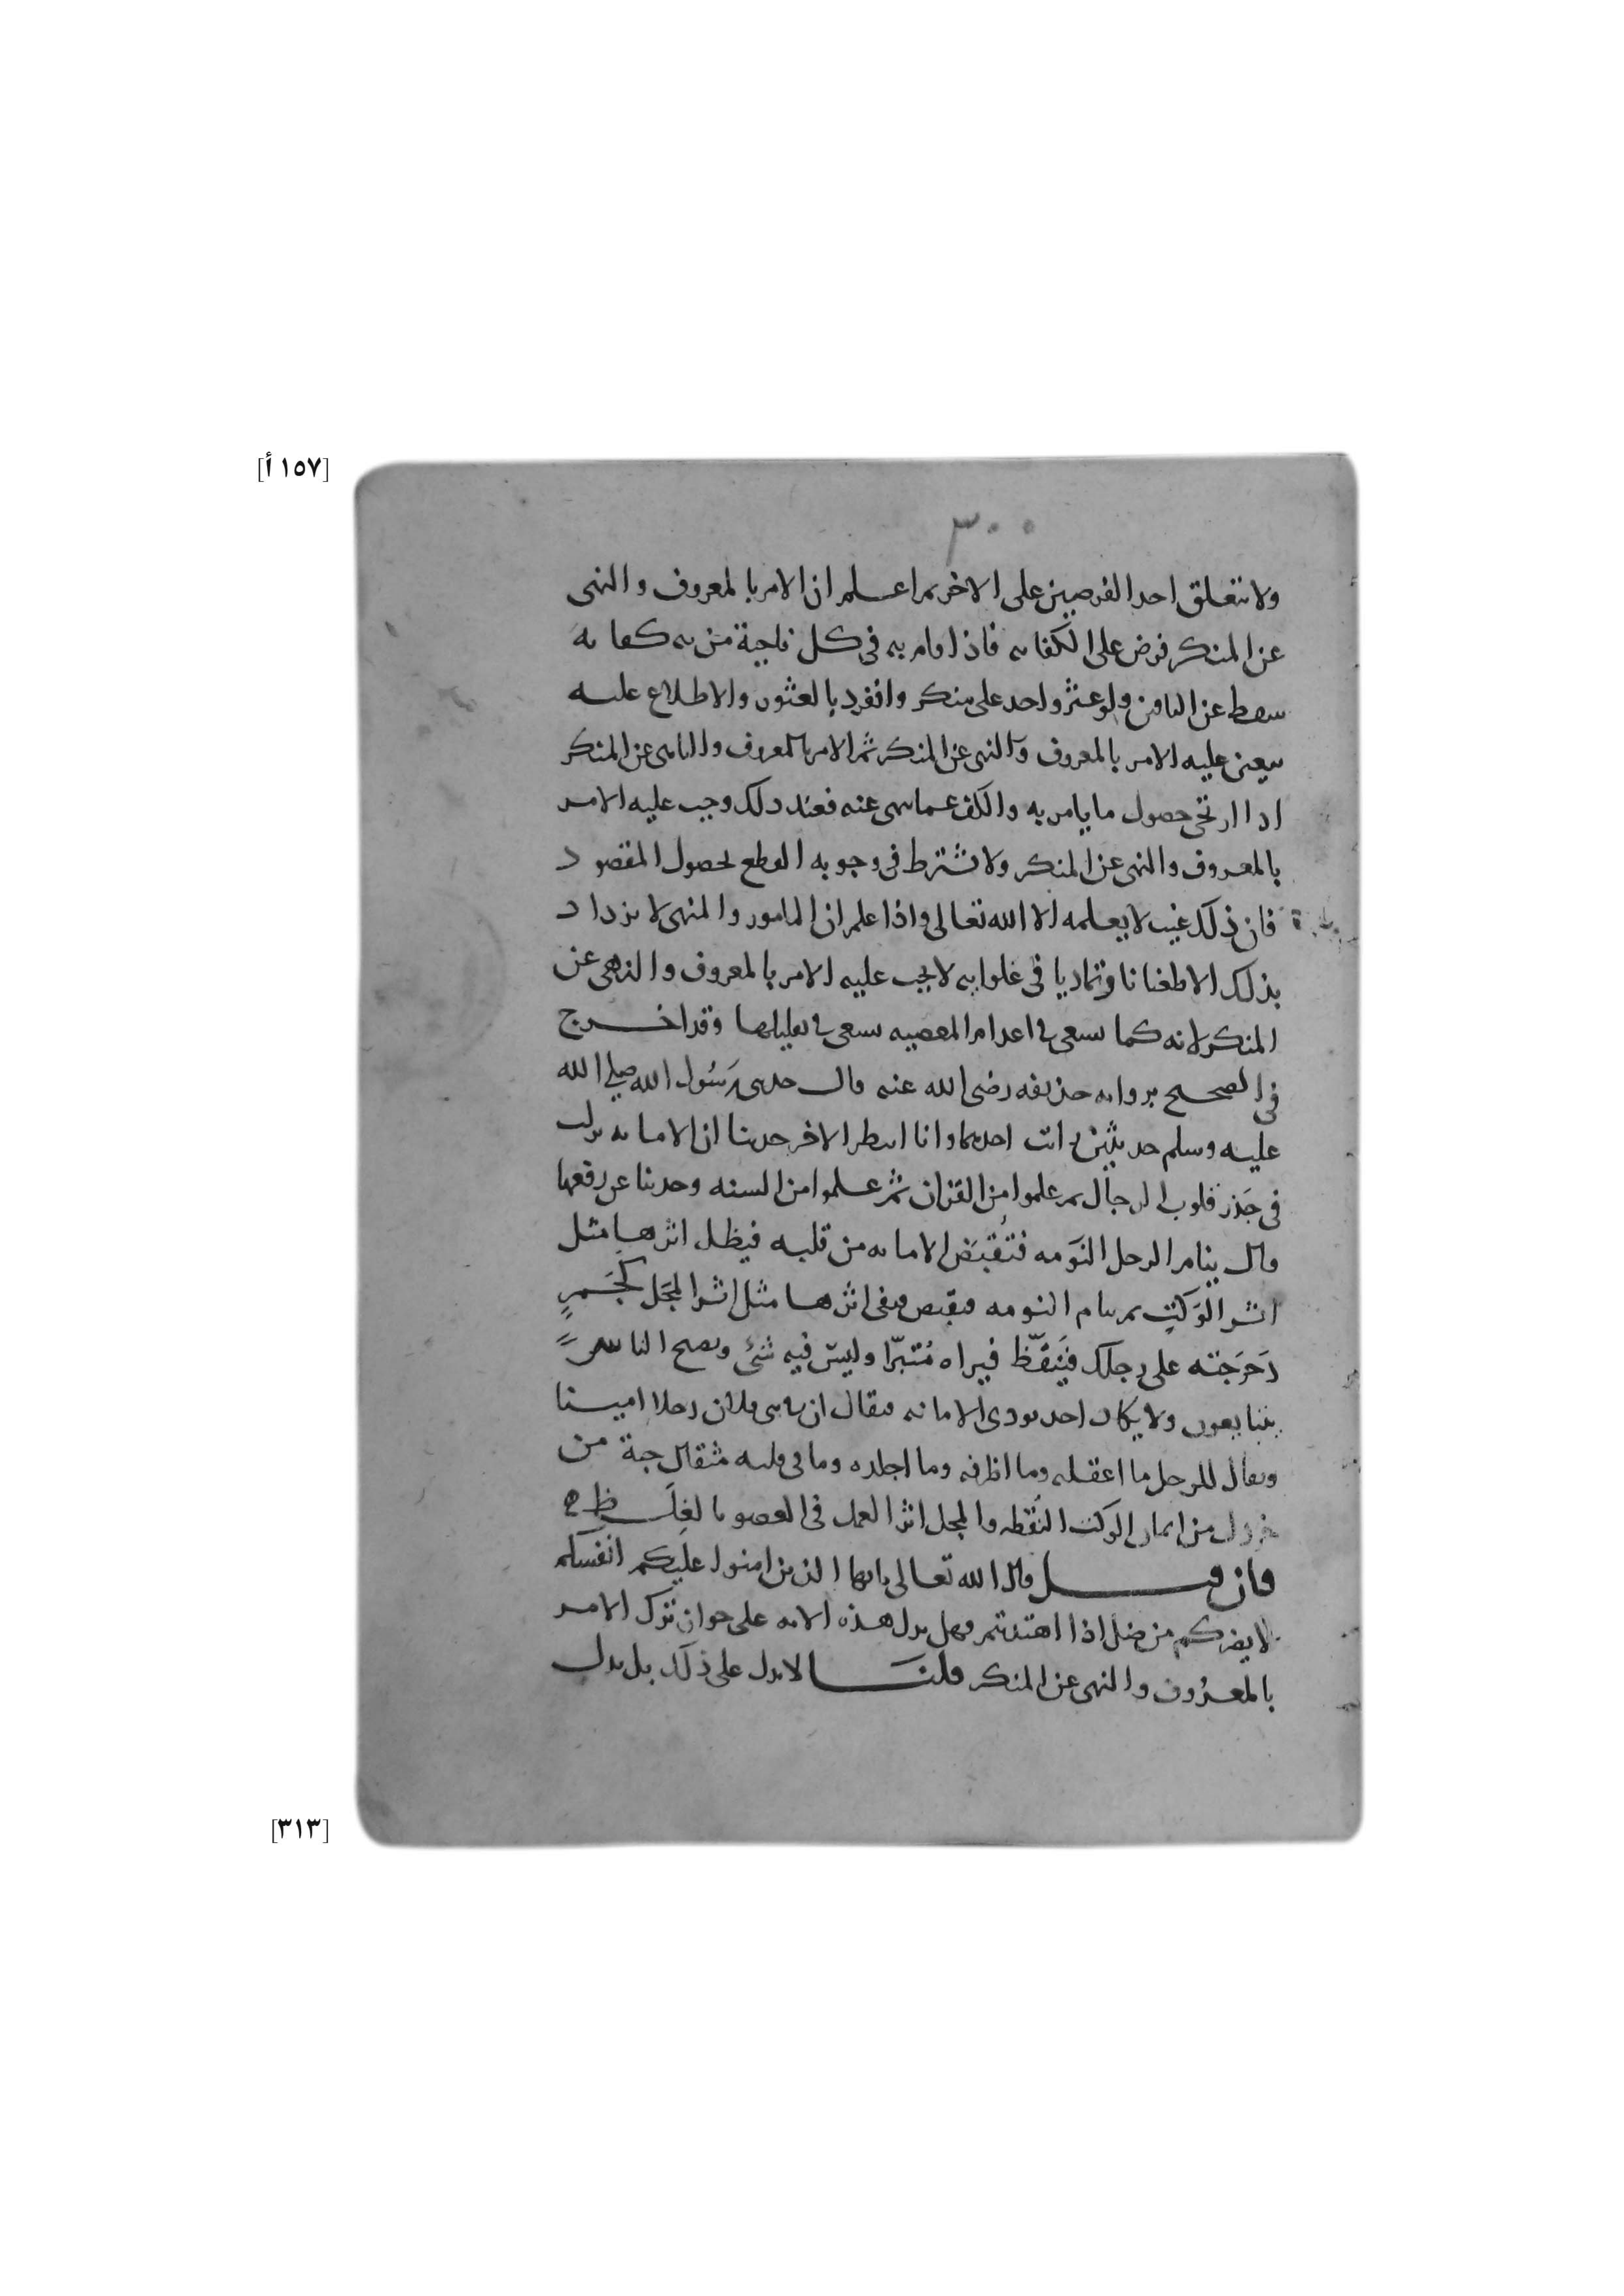 [١٥٧ أ]
٣٠٠
ولا تتعلق احد الفرضين على الاخر ثم اعلم ان الامر بالمعروف والنهى
عن المنكر فرض على الكفايه فاذا قام به فى كل ناحية من به كفايه
سقط عن الباقين ولو عثر واحد على منكر وانفرد بالعثور والاطلاع عليه
تعين عليه الامر بالمعروف والنهى عن المنكر ثم الامر بالمعروف والناهى عن المنكر
اذا ارتجى حصول ما يامر به والكف عما نهى عنه فعند ذلك وجب عليه الامر
بالمعروف والنهى عن المنكر ولا تشترط فى وجوبه القطع لحصول المقصود
فان ذلك غيب لا يعلمه الا الله تعالى واذا علم ان المامور والمنهى لا يزداد
بذلك الا طغيانا وتماديا فى غلوايه لا يجب عليه الامر بالمعروف والنهى عن
المنكر لانه كما نسعى فى اعدام المعصيه نسعى فى تقليلها وقد اخرج
فى الصحيح بروايه حذيفه رضى الله عنه قال حدثنى رَسُول الله صلى الله
عليه وسلم حديثين رايت احدهما وانا انتظر الاخر حدثنا ان الامانه نزلت
فى جَذر قلوب الرجال ثم علموا من القران ثم علموا من السنه وحدثنا عن رفعها
قال ينام الرجل النَومه فتُقبَض الامانه من قلبه فيظل اثرها مثل
اثر الوَكتِ ثم ينام النومه فتقبض فيبقى اثرها مثل اثر المجَل كجَمرٍ
دَحرَجته على رجلك فيَنقَّظ فيراه مُنتبرّا وليسَ فيه شئ ويصبح الناس
يتبايعون ولا يكاد احد يودى الامانه فيقال ان فى بنى فلان رجلا امينا
ويقال للرجل ما اعقله وما اظرفه وما اجلده وما فى قلبه مثقال حبة من
خردل من ايمان الوكت النُقطه والمجل اثر العمل فى العضو بالغِلَظ ه
فان قيل قال الله تعالى يايها الذين امنوا عليكم انفسكم
لا يضركم من ضل اذا اهتديتم فهل يدل هذه الايه على جواز ترك الامر
بالمعرُوف والنهى عن المنكر قلنا لا يدل على ذلك بل يدل
[٣١٣]